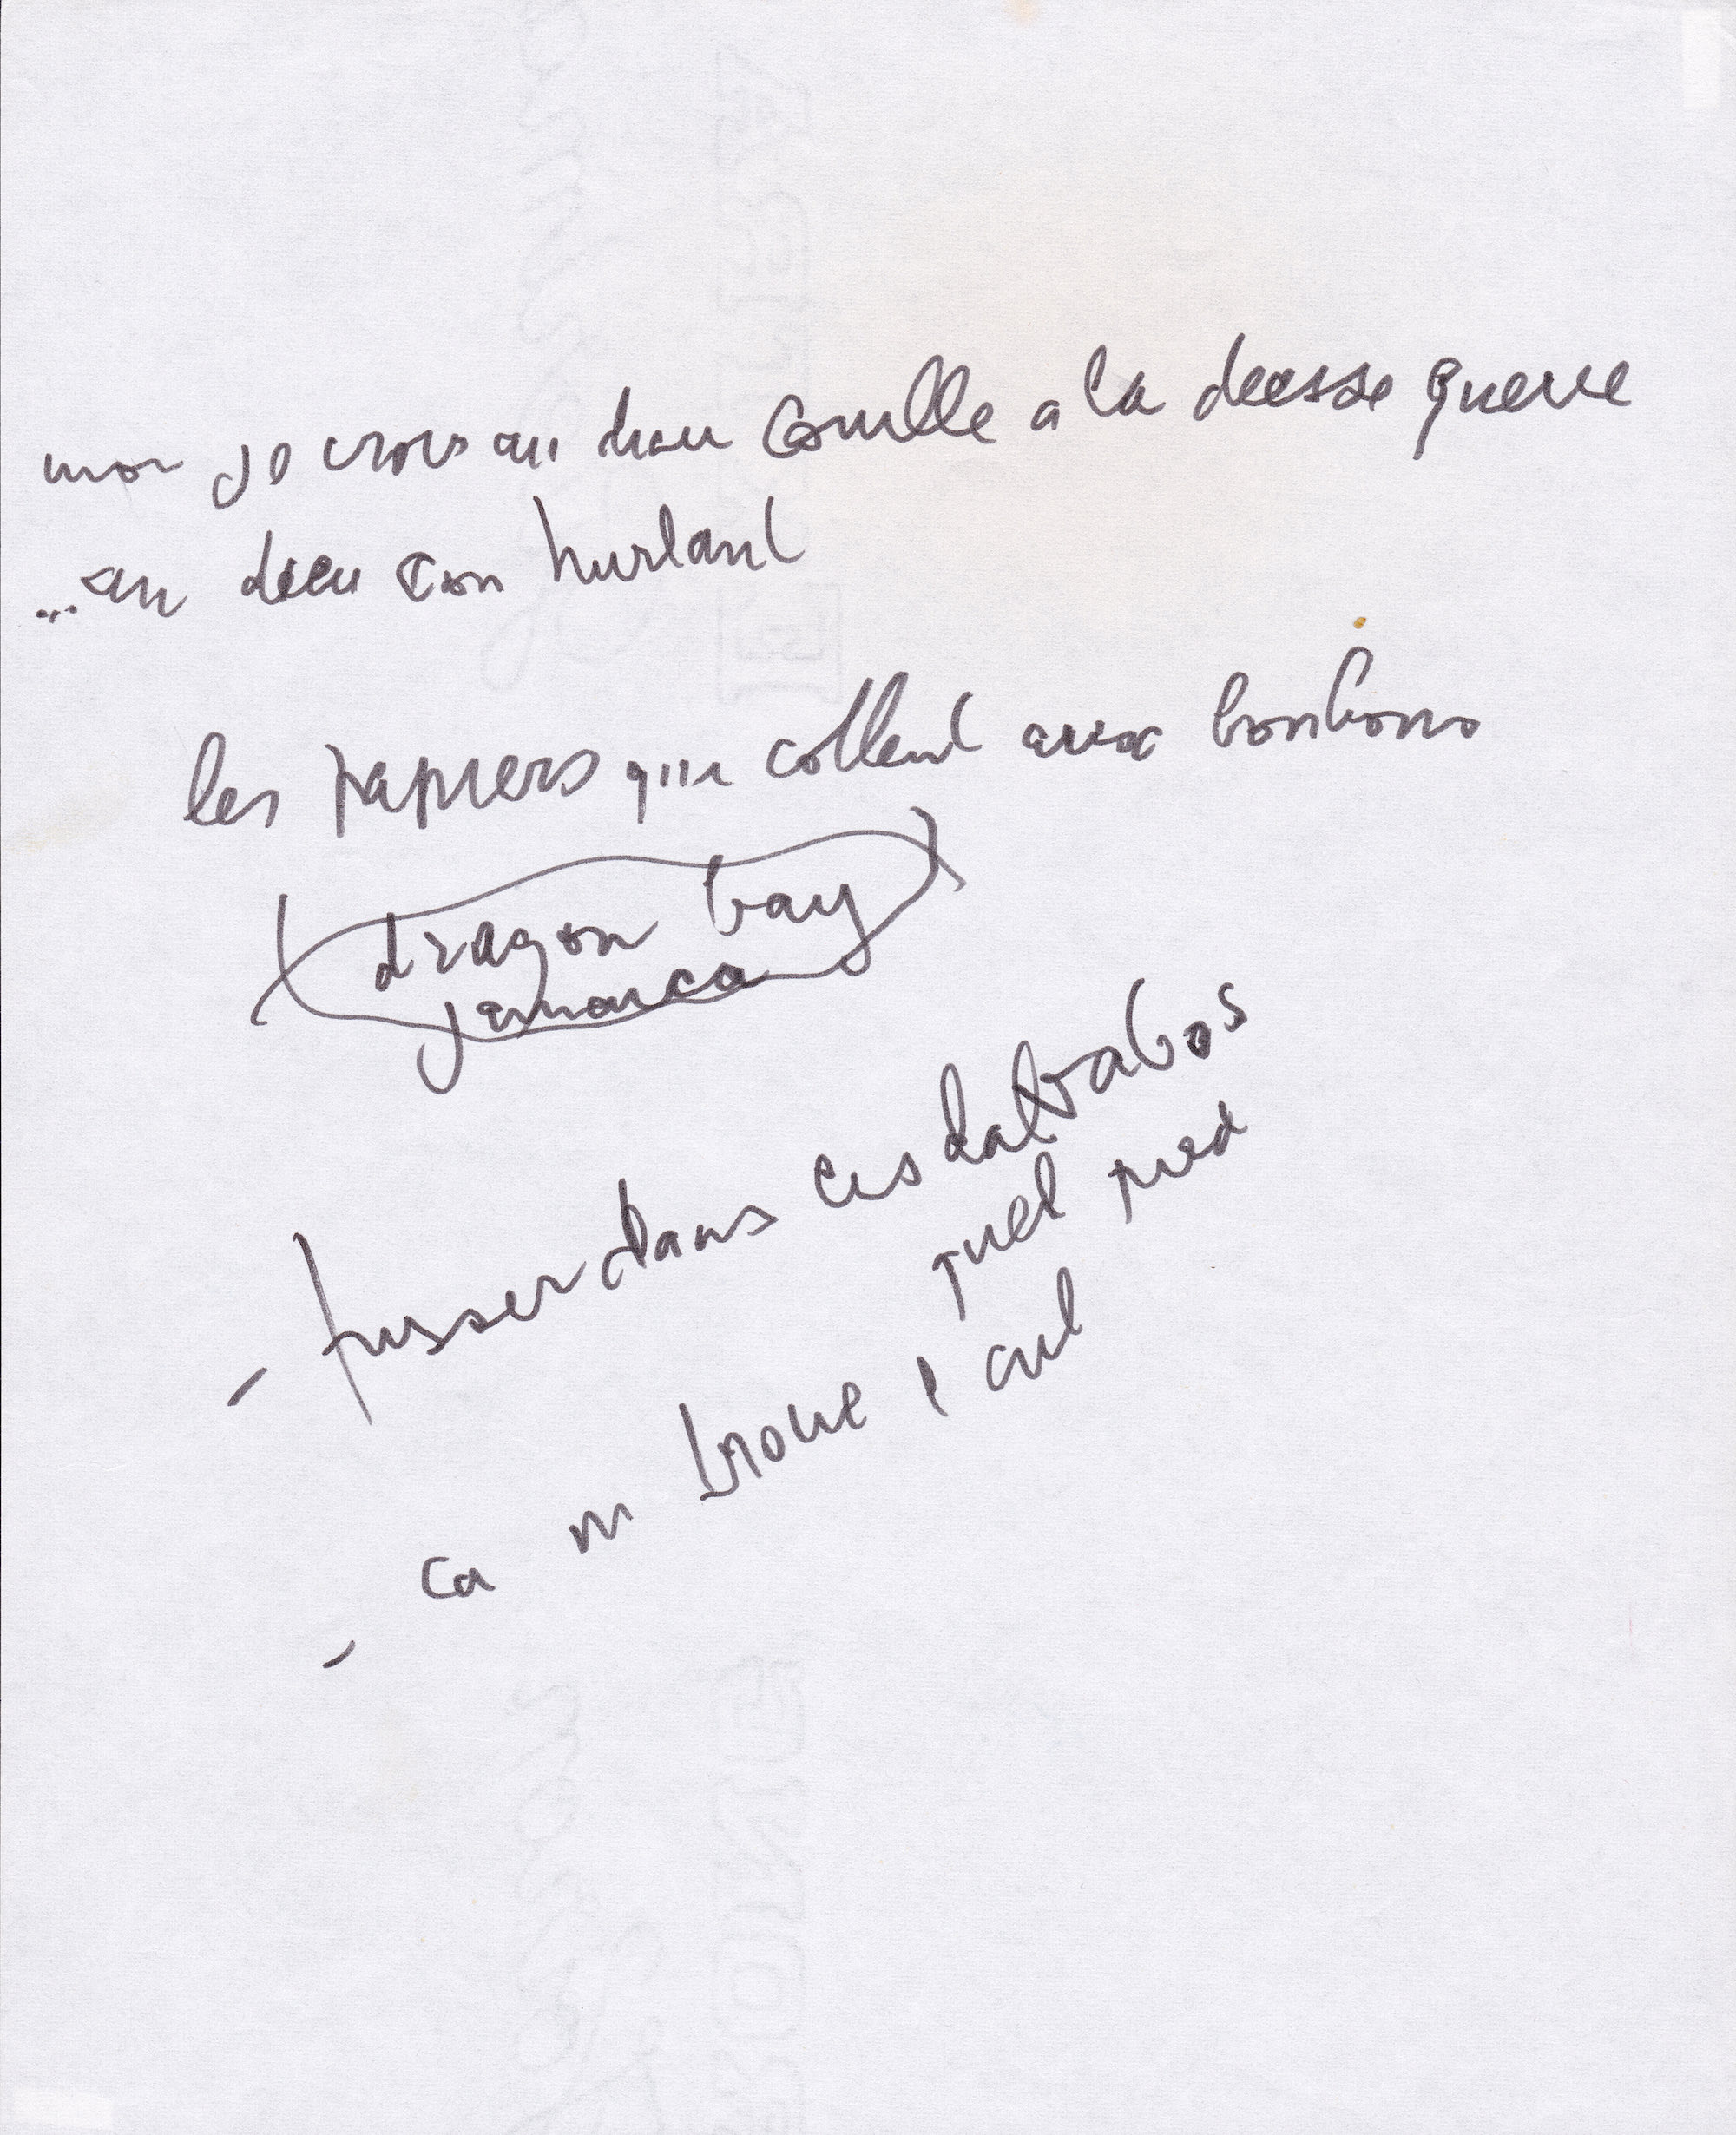 moi je crois au dieu couille a la deesse guerre
...au dieu con hurlant
les papiers qui collent aux bonbons
dragon bay
jamaica
- pisser dans ces lavabos
quel pied
- ca m troue l cul